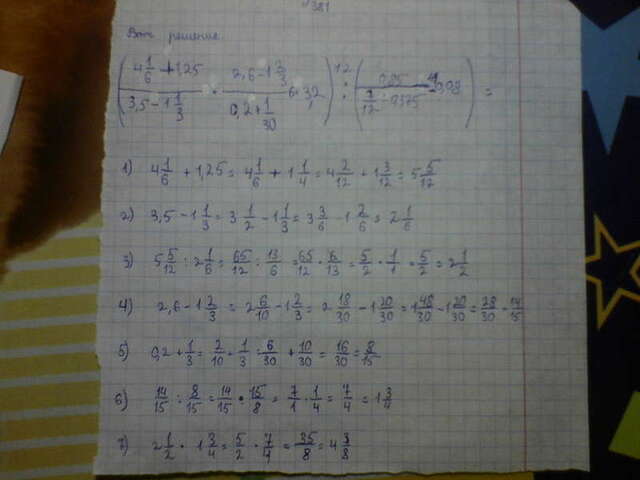 381
Вот решение
(4 1/6 + 1,25 / 3,5 - 1 1/3 · 2,6 - 1 2/3 / 0,2 + 1/30) : (0,85 / 7/12 - 0375) =
1) 4 1/6 + 1,25 = 4 1/6 + 1 1/4 = 4 2/12 + 1 3/12 = 5 5/12
2) 3,5 - 1 1/3 = 3 1/2 - 1 1/3 = 3 3/6 - 1 2/6 = 2 1/6
3) 5 5/12 : 2 1/6 = 65/12 : 13/6 = 65/12 · 6/13 = 5/2 · 1/1 = 5/2 = 2 1/2
4) 2,6 - 1 2/3 = 2 6/10 - 1 2/3 = 2 18/30 - 1 20/30 = 1 48/30 - 1 20/30 = 28/30 = 14/15
5) 0,2 + 1/3 = 2/10 + 1/3 = 6/30 + 10/30 = 16/30 = 8/15
6) 14/15 : 8/15 = 14/15 · 15/8 = 7/1 · 1/4 = 7/4 = 1 3/4
7) 2 1/2 · 1 3/4 = 5/2 · 7/4 = 35/8 = 4 3/8